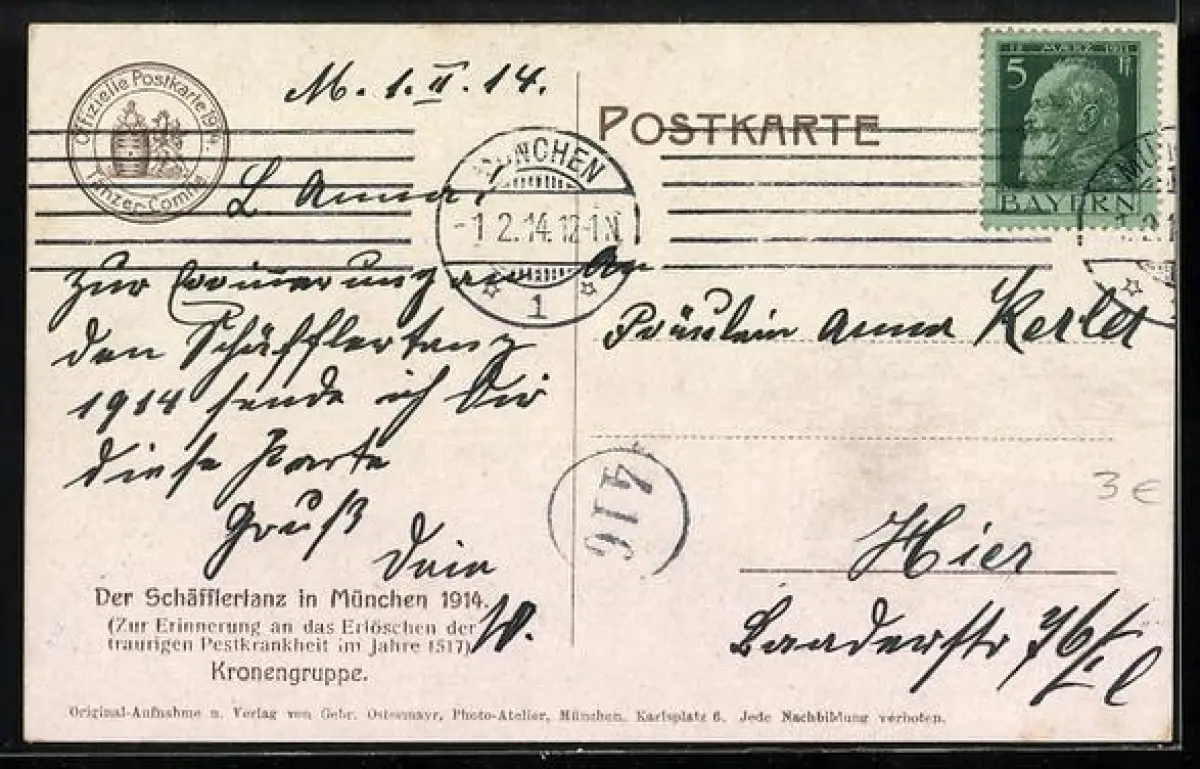 Offizielle Postkarte 1914.
Tänzer-Comité
M. 1.II.14.
POSTKARTE
12 MÄRZ 1911
5 Pf
BAYERN
MÜNCHEN
-1.2.14.12-1N
1
L Anna!
zur Erinnerung an
den Schäfflertanz
1914 sende ich Dir
diese Karte
Gruß
Dein
W.
An
Fräulein Anna
Hier
Baaderstr
416
3 €
Der Schäfflertanz in München 1914.
(Zur Erinnerung an das Erlöschen der
traurigen Pestkrankheit im Jahre 1517)
Kronengruppe.
Original-Aufnahme u. Verlag von Gebr. Ostermayr, Photo-Atelier, München, Karlsplatz 6. Jede Nachbildung verboten.